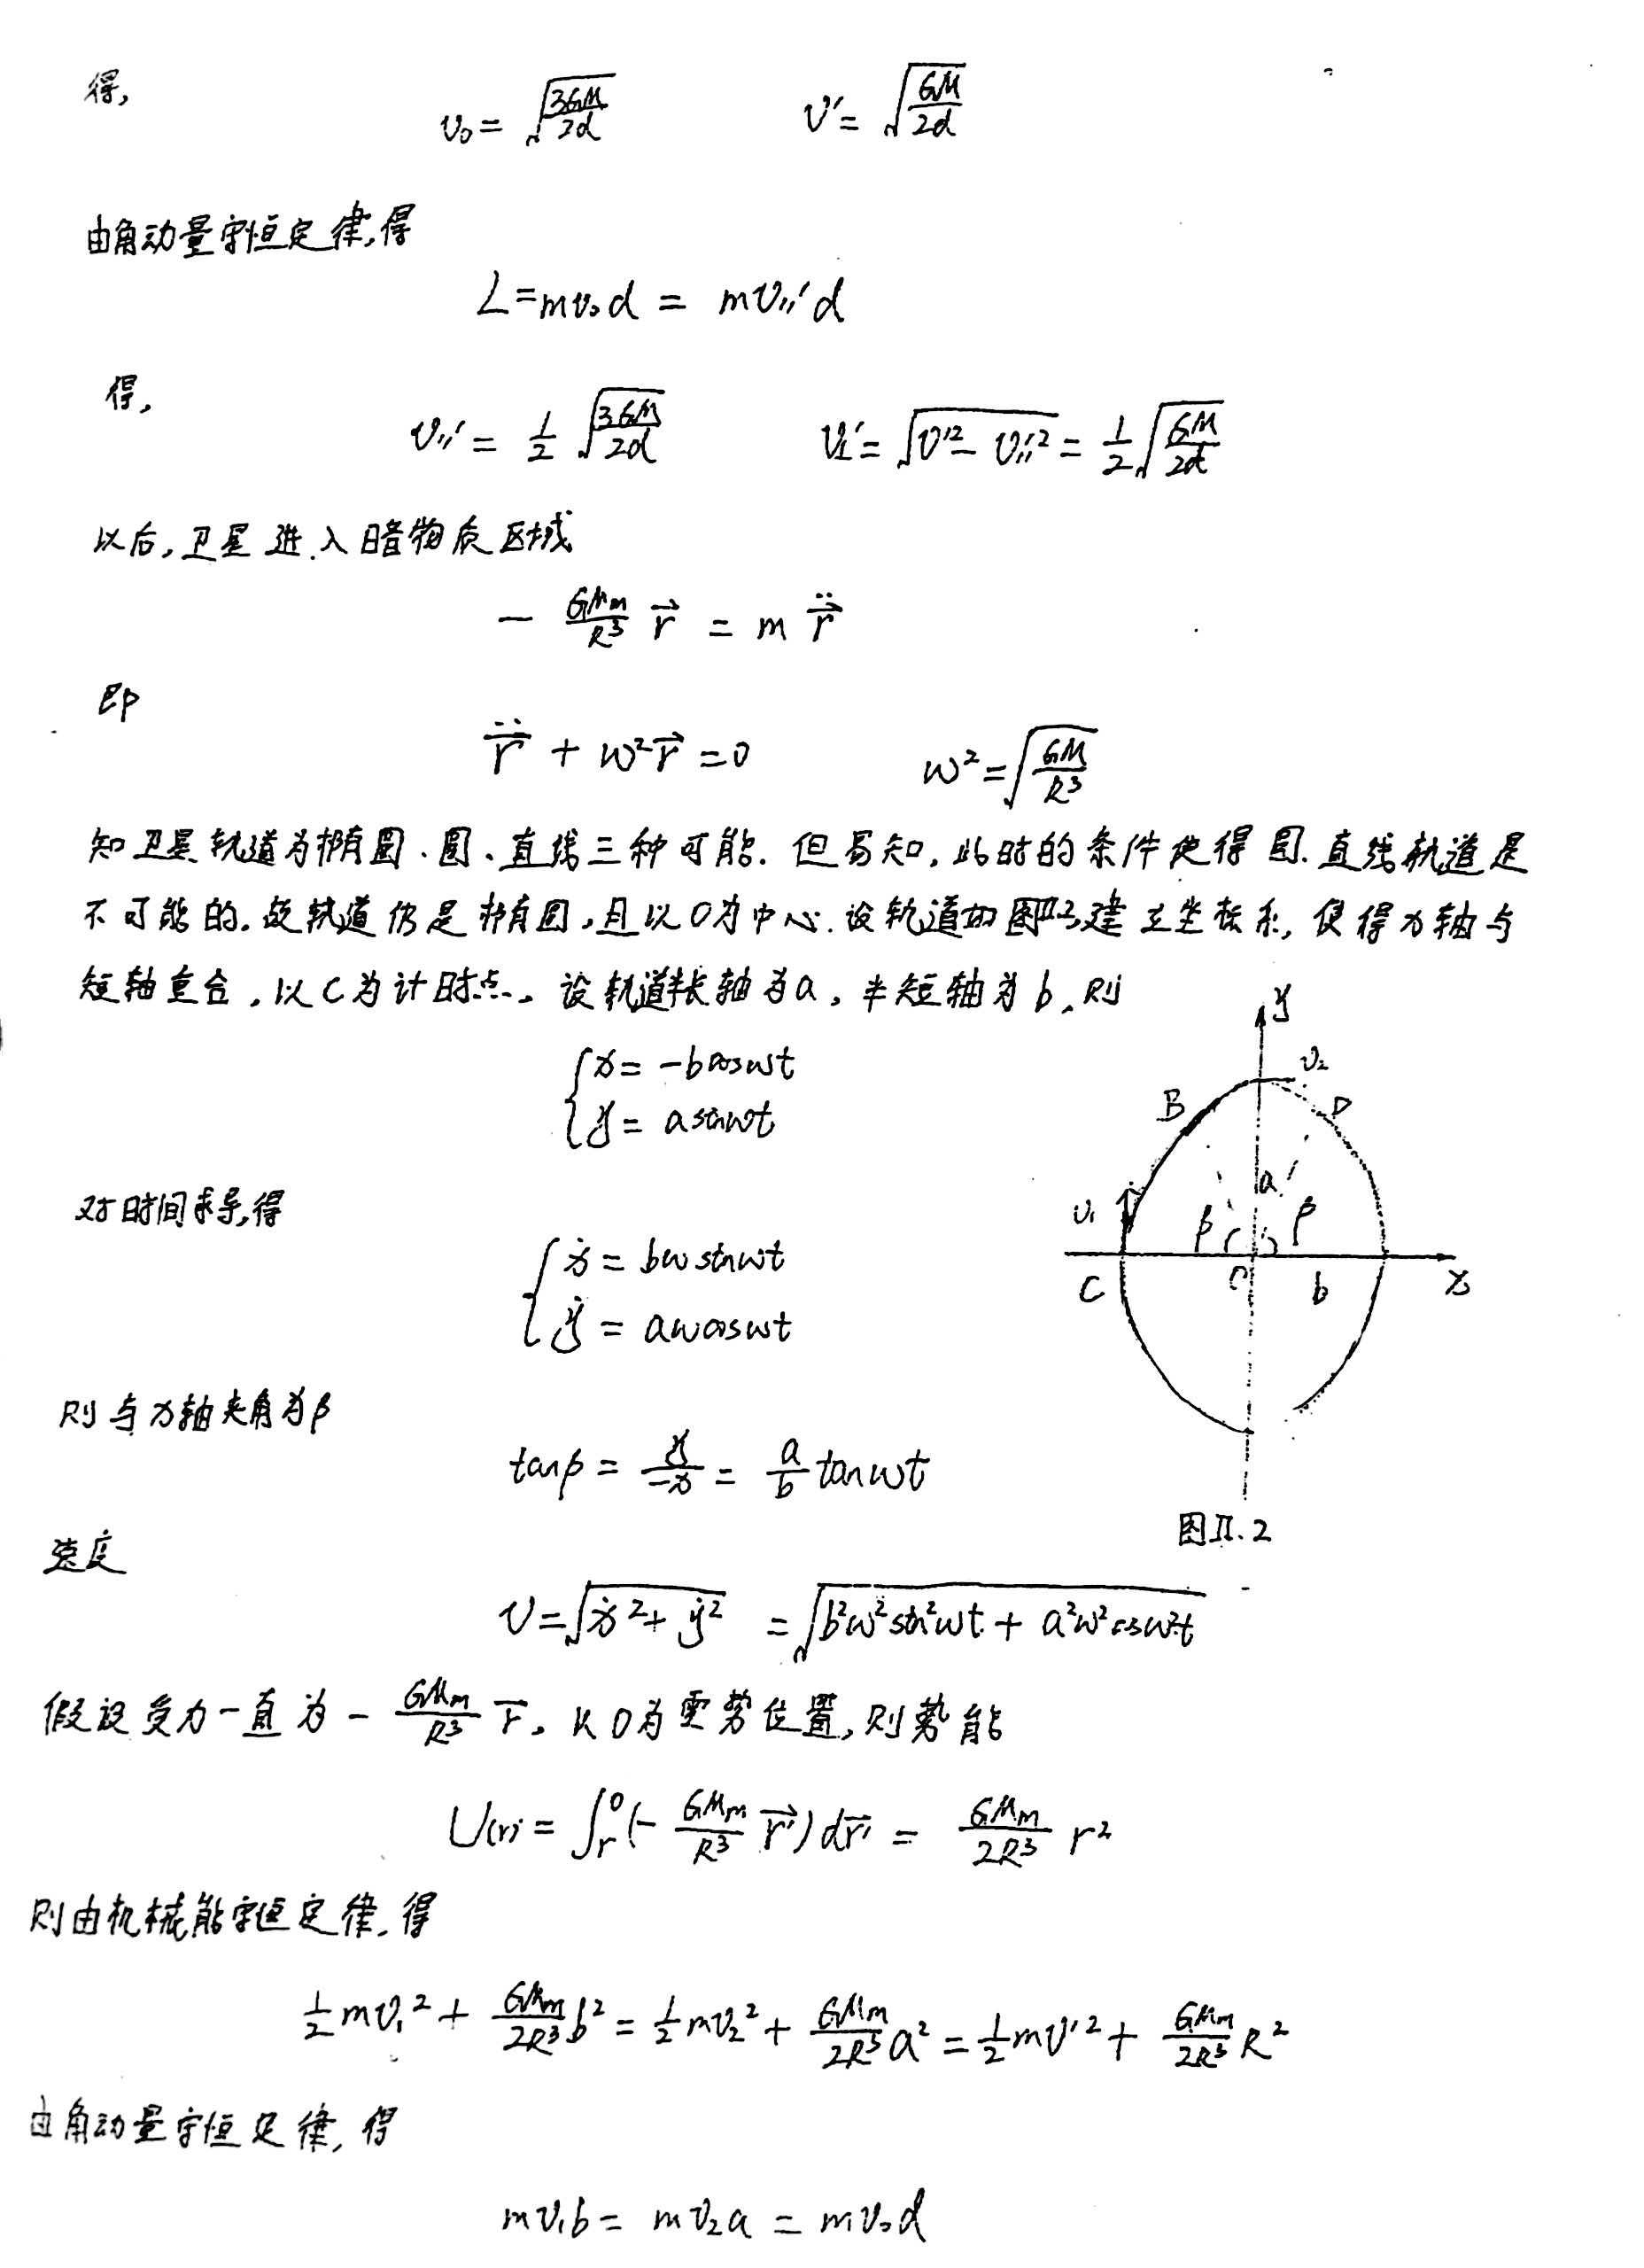 得,
v₀ = √(3GM/2d)    v′ = √(GM/2d)
由角动量守恒定律,得
L = mv₀d = mv∥′d
得,
v∥′ = 1/2 √(3GM/2d)    v⊥′ = √(v′² − v∥′²) = 1/2 √(GM/2d)
以后,卫星进入暗物质区域
− GMm/R³ r⃗ = m r̈⃗
即
r̈⃗ + ω²r⃗ = 0    ω² = √(GM/R³)
知卫星轨道为椭圆、圆、直线三种可能. 但易知, 此时的条件使得圆.直线轨道是
不可能的. 故轨道仍是椭圆,且以O为中心. 设轨道如图II.2,建立坐标系, 使得x轴与
短轴重合,以C为计时点. 设轨道半长轴为a, 半短轴为b, 则
{ x = −bcosωt
y = asinωt
对时间求导,得
{ ẋ = bωsinωt
ẏ = aωcosωt
则与x轴夹角为β
tanβ = y/−x = a/b tanωt
速度
v = √(ẋ² + ẏ²) = √(b²ω²sin²ωt + a²ω²cos²ωt)
假设受力一直为 − GMm/R³ r⃗, 以O为零势位置,则势能
U(r) = ∫ᵣ⁰(− GMm/R³ r⃗′)dr⃗′ = GMm/2R³ r²
则由机械能守恒定律,得
1/2 mv₁² + GMm/2R³ b² = 1/2 mv₂² + GMm/2R³ a² = 1/2 mv′² + GMm/2R³ R²
由角动量守恒定律, 得
mv₁b = mv₂a = mv₀d
y
v₂
B
D
a
v₁
β
β
C
O
b
x
图II.2